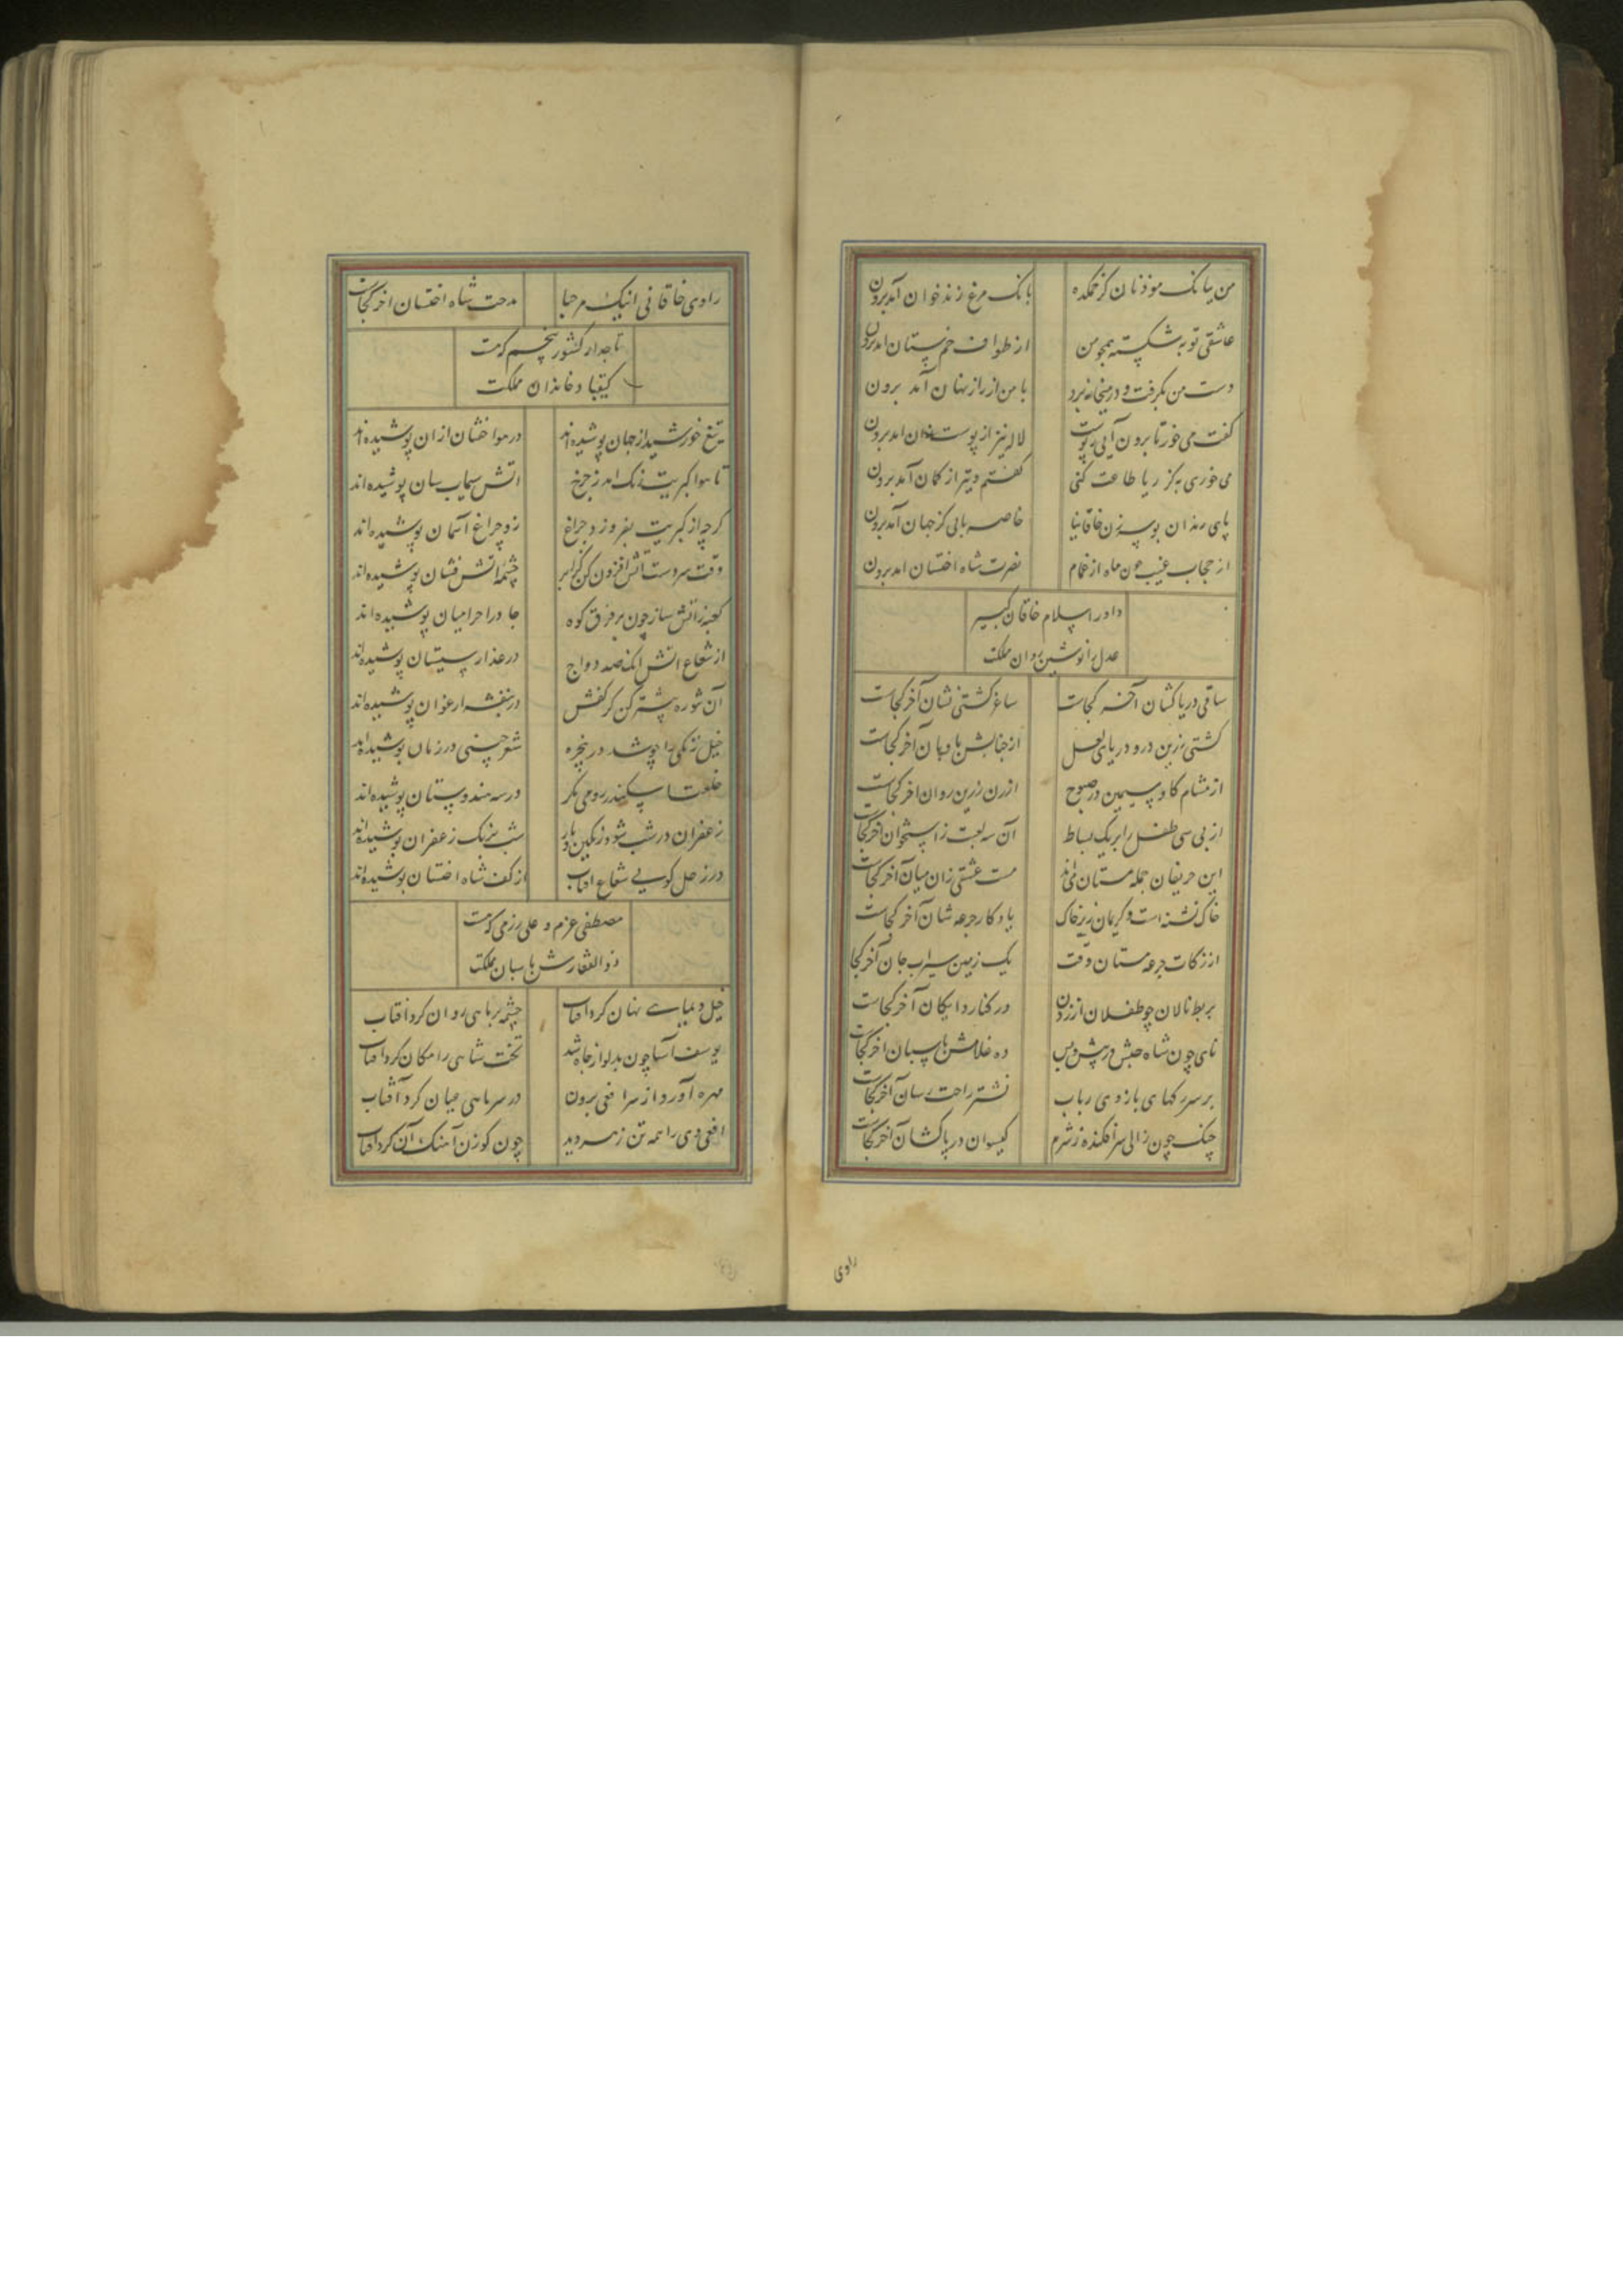 من ببانک موذنان کز خمکده بانک مرغ زند خوان آمد برون
عاشقی توبه شکسته همچو من از طواف خم پستان امد برون
دست من بکرفت و در میخانه برد با من از راز نهان آمد برون
کفت می خور تا برون آیی ز پوست لاله نیز از پوست زان امد برون
می خوری به کز ریا طاعت کنی کفتم و تیر از کمان آمد برون
پای رندان بوسه زن خاقانیا خاصه بابی کز جهان آمد برون
از حجاب غیب چون ماه از غمام نصرت شاه اخستان امد برون
داور اسلام خاقان کبیر
عدل را نوشین روان مملکت
ساقی دریا کشان آخر کجاست ساغر کشتی نشان آخر کجاست
کشتی زرین درو دریای لعل از جنابش بادبان آخر کجاست
از مشام کاو سیمین در صبوح ارزن زرین روان اخر کجاست
از بی سی طفل را بر یک بساط آن سه لعبت ز استخوان اخر کجاست
این حریفان جمله مستان می‌اند مست عشقی زان میان آخر کجاست
خاک تشنه است و کریمان زیر خاک یادکار جرعه شان آخر کجاست
از زکات جرعه مستان وقت یک زمین سیراب جان آخر کجا
بربط نالان چو طفلان از زدن در کنار دایکان آخر کجاست
نای چون شاه حبش در پیش و پس ده غلامش پاسبان اخر کجاست
بر سر رکهای بازوی رباب نشتر راحت رسان آخر کجاست
چنک چون زالی سر افکنده ز شرم کیسوان در پا کشان آخر کجاست
راوی
راوی خاقانی اینک مرحبا مدحت شاه اخستان اخر کجاست
تاجدار کشور پنجم که هست
کیقباد خاندان مملکت
تیغ خورشید از جهان پوشیده‌اند در هوا خفتان ازان پوشیده‌اند
تا هوا کبریت رنک امد ز چرخ اتش سیماب سان پوشیده‌اند
کرچه از کبریت بفروزد چراغ زو چراغ آسمان پوشیده‌اند
وقت سردست اتش افزون کن کز ابر چشمه اتش فشان پوشیده‌اند
کعبه ز اتش ساز چون بر فرق کوه جادر احرامیان پوشیده‌اند
از شعاع اتش اینک صد دواج در عذار سیستان پوشیده‌اند
آن شوره بیشتر کن کز کفش در بنفشه ارغوان پوشیده‌اند
خیل زنکی را چو شد در پنجره شعر چینی در زمان پوشیده‌اند
خلعت اسکندر رومی نکر در سه هندوستان پوشیده‌اند
زعفران در شب شود رنکین بار شب برنک زعفران پوشیده‌اند
در زحل کویی شعاع افتاب از کف شاه اخستان پوشیده‌اند
مصطفی عزم و علی رزمی که هست
ذوالفقارش پاسبان مملکت
خیل دیماهی نهان کرد افتاب چشمه بر ماهی روان کرد افتاب
یوسف آسا چون بدلو از چاه شد تخت شاهی را مکان کرد افتاب
مهره آورد از سر افعی برون در سر ماهی عیان کرد آفتاب
افعی دی را همه تن زهر دید چون کوزن آهنک آن کرد افتاب